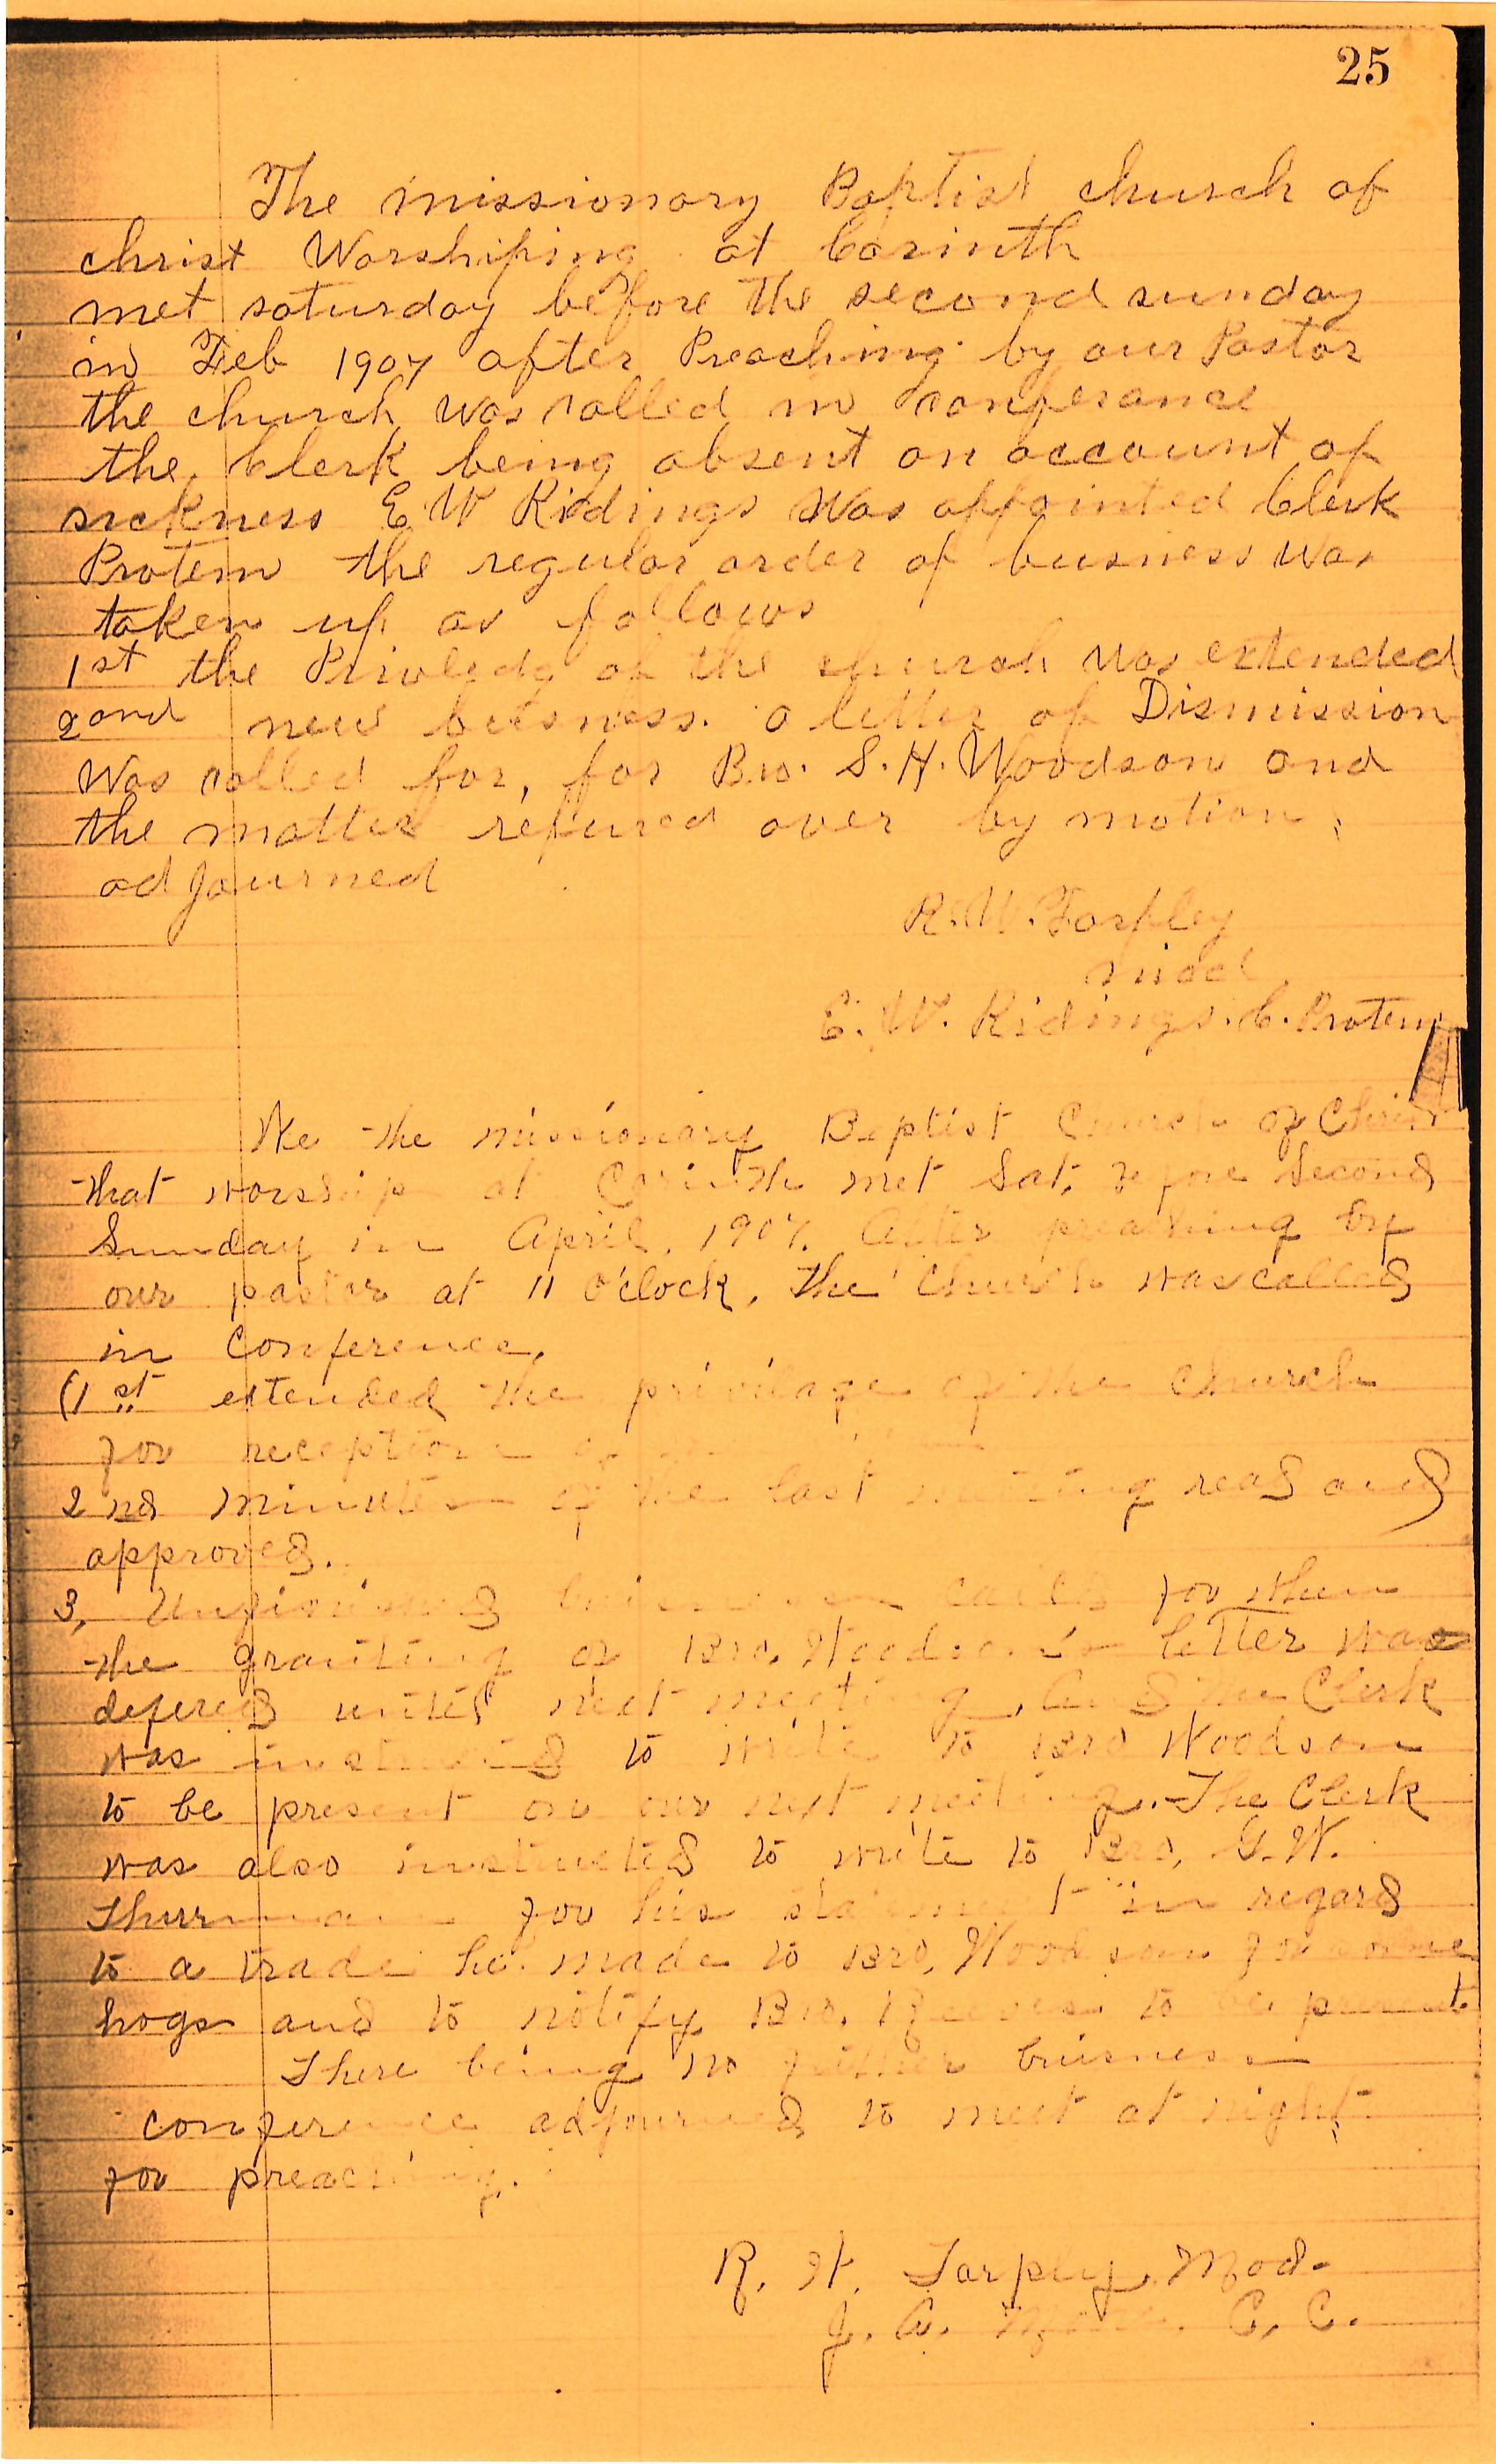 25
The missionary Baptist church of
christ Worshiping at Corinth
met saturday before the second sunday
in Feb 1907 after Preaching by our Pastor
the church was called in conferance
the Clerk being absent on account of
sickness E. W Ridings Was appointed Clerk
Protem the regular order of busness was
taken up as follows
1st the Privledg of the church was extended
2ond new buisness. a letter of Dismission
Was called for, for Bro. S. H. Woodson and
the matter refured over by motion,
adjourned
R. W. Tarpley
E. W. Ridings. C. Protem
We the missionary Baptist Church of Christ
that worship at Corinth met Sat. before Second
Sunday in April, 1907. After preaching by
our pastor at 11 O'clock, the Church was called
in Conference.
(1st extended the privilage of the Church
for reception
2nd minutes of the last meeting read and
approved.
3, Unfinished called for when
the granting of Bro. Woodson's letter was
defered until next meeting, And the Clerk
was instructed to write to Bro Woodson
to be present on our next meeting. The Clerk
was also instructed to write to Bro, G. W.
Thurman for his statement in regard
to a trade he made to Bro, Woodson for some
hogs and to notify Bro. to be present
There being no further buisness
conference adjourned to meet at night
for preaching.
R. W. Tarpley, Mod.
J. A. C. C.